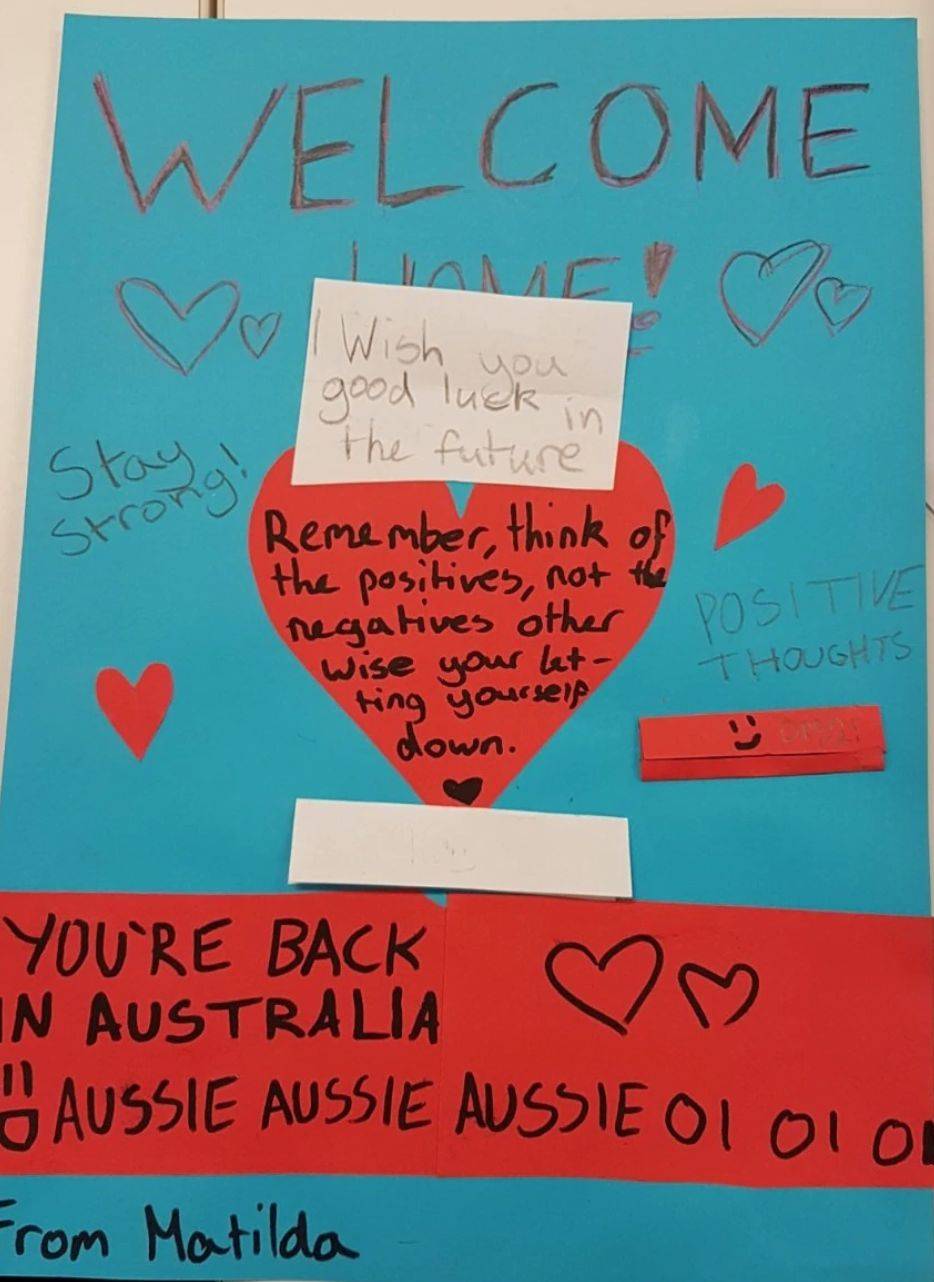 WELCOME
HOME!
I Wish you
good luck in
the future
Stay
Strong!
Remember, think of
the positives, not the
negatives other
wise your let-
ting yourself
down.
POSITIVE
THOUGHTS
YOU'RE BACK
IN AUSTRALIA
AUSSIE AUSSIE AUSSIE OI OI OI
From Matilda